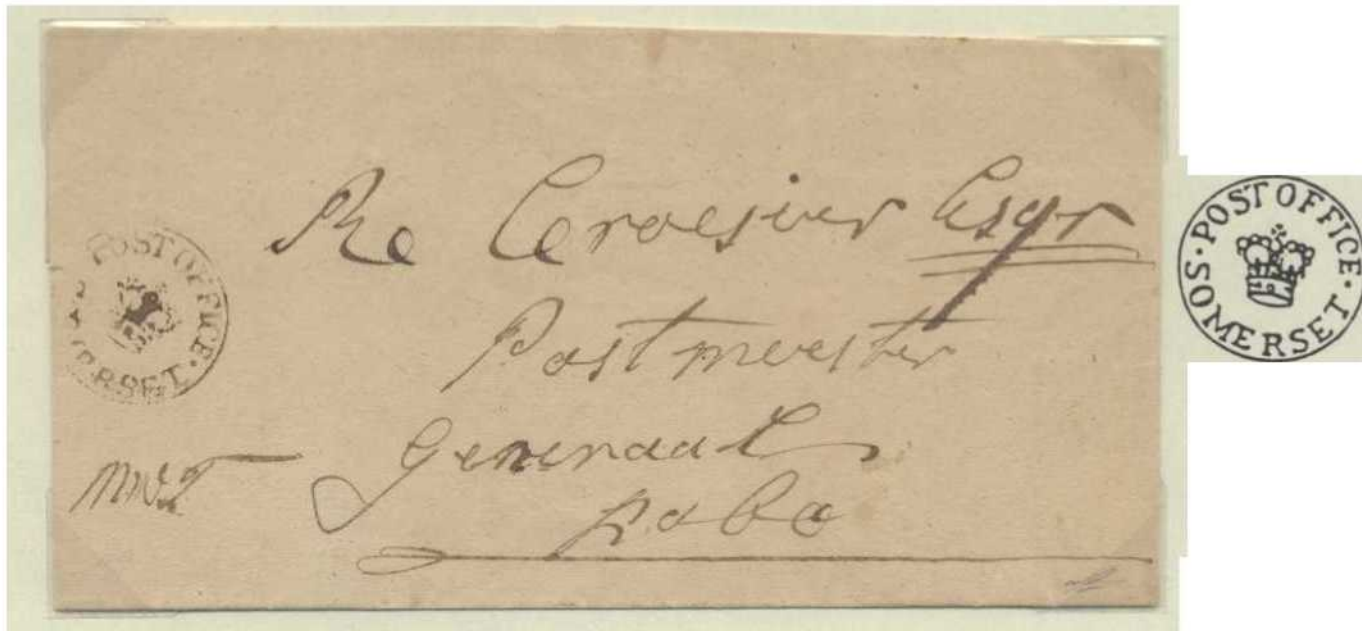 POST OFFICE
ERSET.
Re Crozier Esqr
Postmeester
Generaal
· POST OFFICE · SOMERSET